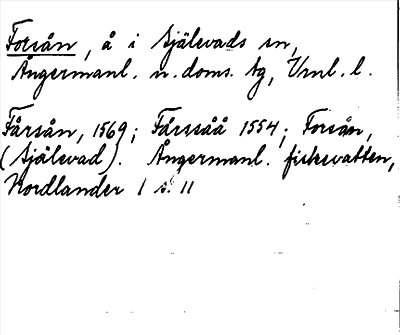 Forsån, å i Själevads sn,
Ångermanl. n. doms. tg, Vrnl. l.
Fårsån, 1569; Fårssåå 1554; Forsån,
(Själevad). Ångermanl. fiskevatten,
Nordlander I s. 11